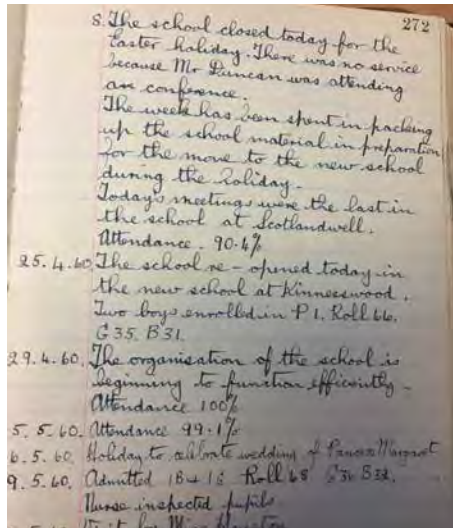 272
8. The school closed today for the
Easter holiday. There was no service
because Mr Duncan was attending
an conference.
The week has been spent in packing
up the school material in preparation
for the move to the new school
during the holiday.
Today's meetings were the last in
the school at Scotlandwell.
Attendance. 90.4%
25.4.60. The school re-opened today in
the new school at Kinnesswood.
Two boys enrolled in P1. Roll 66.
G35. B31.
29.4.60. The organisation of the school is
beginning to function efficiently -
Attendance 100%
5.5.60. Attendance 99.1%
6.5.60. Holiday to celebrate wedding of Princess Margaret
9.5.60. Admitted 1B + 1G Roll 68 G36 B32.
Nurse inspected pupils.
Visit by Miss